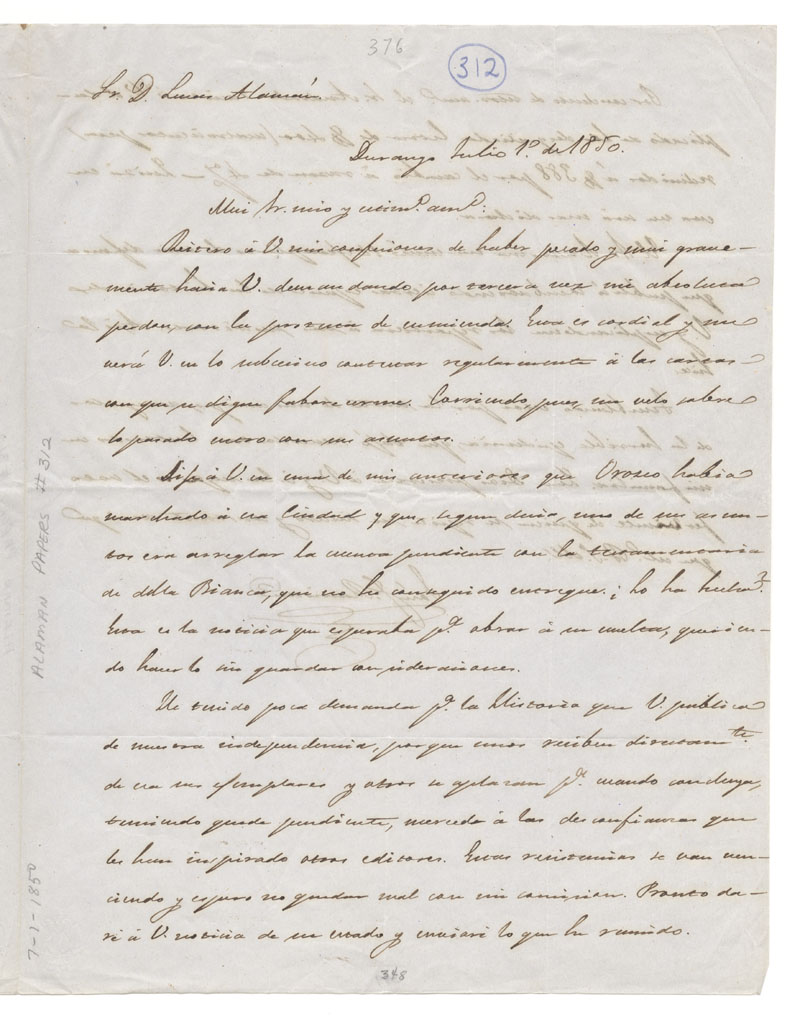 376
312
Sr. D. Lucas Alamán
Durango Julio 1º. de 1850.
Mui Sr. mio y estimº. amº:
Reitero á V. mis confesiones de haber pecado y mui grave-
mente hacia V. demandando por tercera vez mi absoluta
perdon, con la protesta de enmienda. Esta es cordial y me
verá V. en lo subcecivo contestar regularmente á las cartas
con que se digne faborecerme. Corriendo, pues, un velo sobre
lo pasado entro con sus asuntos.
Dije á V. en una de mis anteriores que Orozco habia
marchado á esa Ciudad y que, segun decia, uno de sus asun-
tos era arreglar la cuenta pendiente con la testamentaria
de della Bianca, que no he conseguido entregue. ¿lo ha hecho?
Esta es la noticia que esperaba pª. obrar á su vuelta, querien-
do hacerlo sin guardar consideraciones.
He tenido poca demanda pª. la Historia que V. publica
de nuestra independencia, porque unos reciben directamte.
de esa sus ejemplares y otros se aplazan pª. cuando concluya,
temiendo quede pendiente, merced á las desconfianzas que
les han inspirado otros editores. Estas resistencias se van ven-
ciendo y espero no quedar mal con mi comision. Pronto da-
ré á V. noticia de su estado y enviaré lo que he reunido.
348
ALAMAN PAPERS # 312
7-1-1850